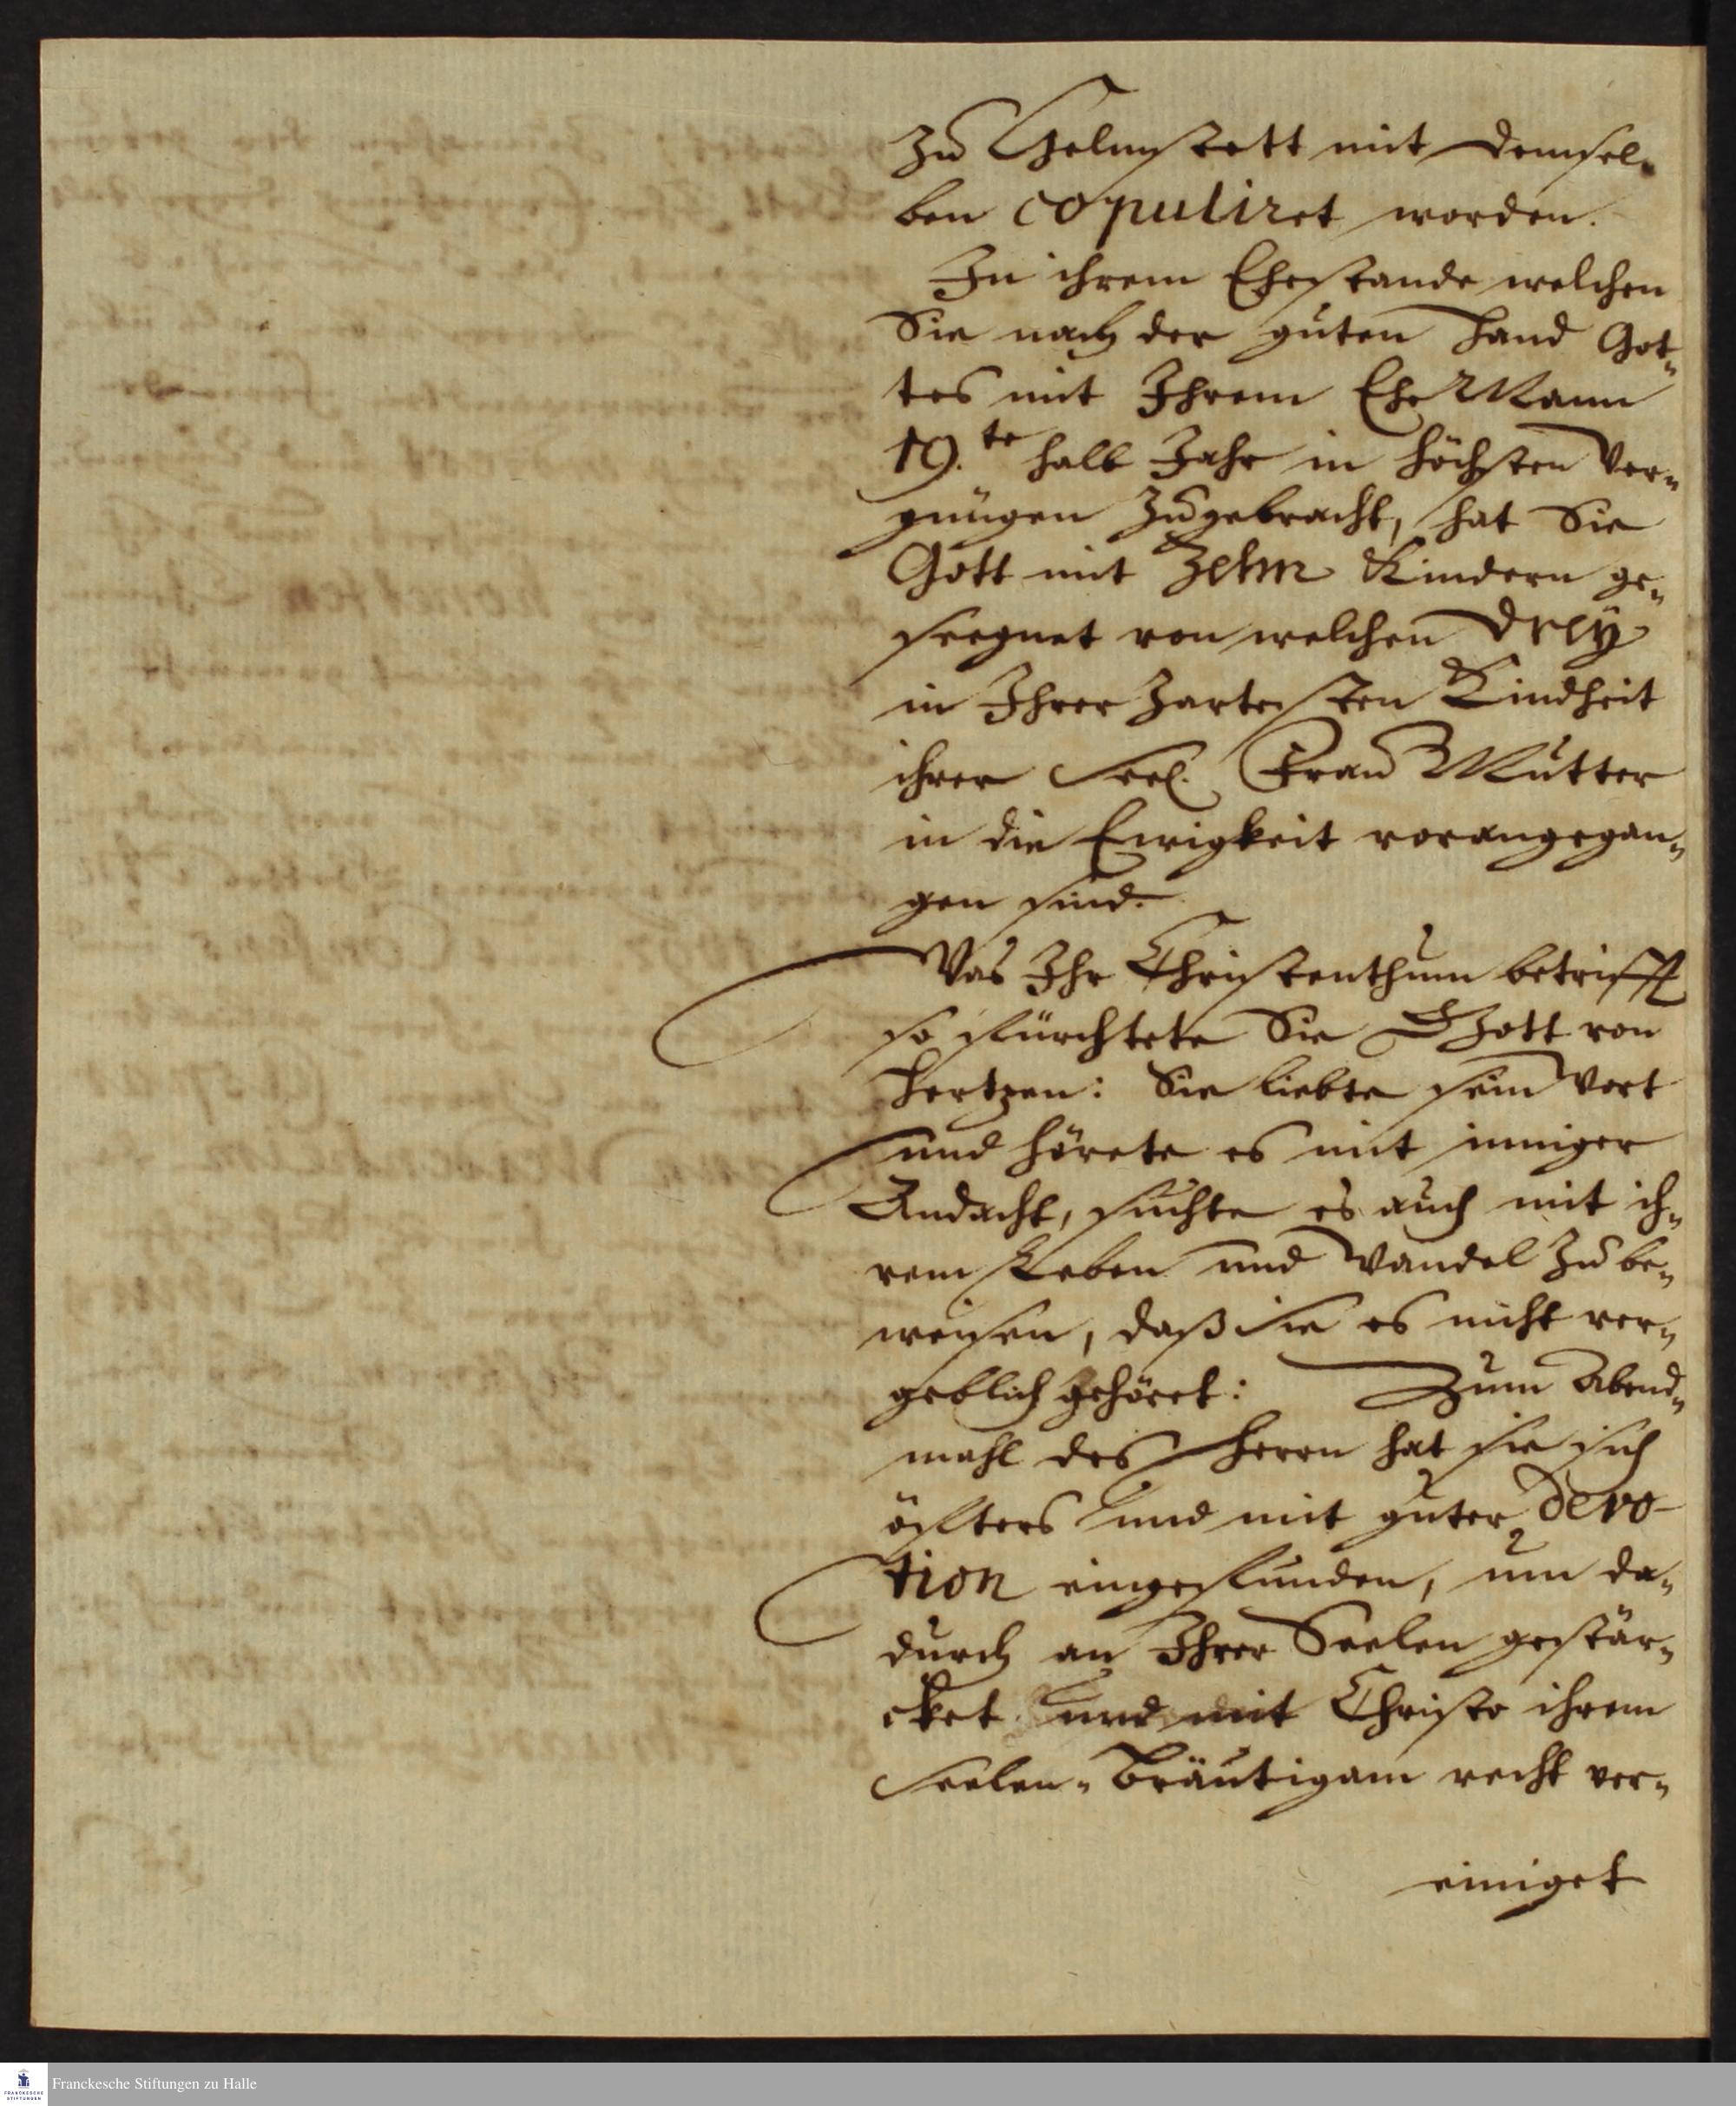 zu Helmstett mit demsel-
ben copuliret worden.
In ihrem Ehestande welchen
Sie nach der guten Hand Got-
tes mit Ihrem Ehe Mann
19.te halb Jahr in höchsten Ver-
gnügen zugebracht, hat Sie
Gott mit Zehn Kindern ge-
seegnet von welchen Drey
in Ihrer zartesten Kindheit
ihrer Seel. Frau Mutter
in die Ewigkeit vorangegan-
gen sind.
Was Ihr Christenthum betrifft
so fürchtete Sie Gott von
Hertzen: Sie liebte sein Wort
und hörete es mit inniger
Andacht, suchte es auch mit ih-
rem Leben und Wandel zu be-
weisen, daß sie es nicht ver-
geblich gehöret: Zum Abend-
mahl des Herrn hat sie sich
öffters und mit guter devo-
tion eingefunden, um da-
durch an Ihrer Seelen gestär-
cket und mit Christo ihrem
Seelen-Bräutigam recht ver-
einiget
Franckesche Stiftungen zu Halle
FRANCKESCHE
STIFTUNGEN